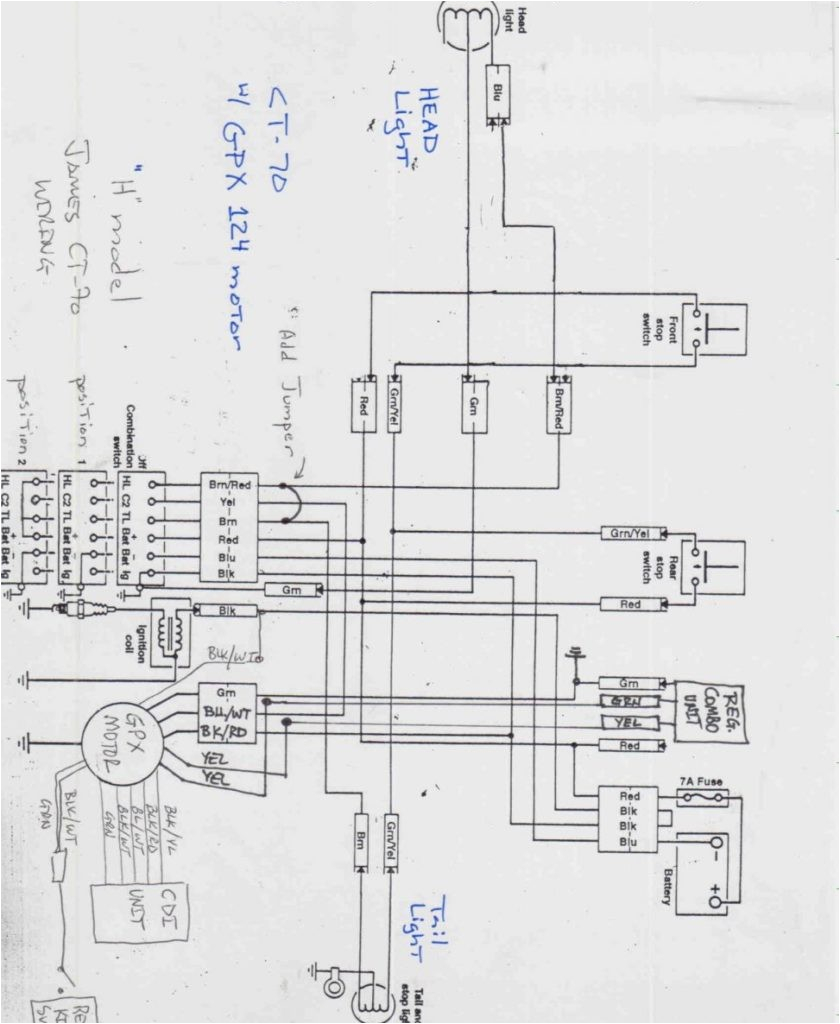 Head
light
Blu
HEAD
Light
CT-70
W/ GPX 124 motor
"H" model
JAMES CT-70
WIRING
Front
stop
switch
Add Jumper
Red
Grn/Yel
Grn
Brn/Red
position 1
position 2
Combination
switch
Off
HL C2 TL Bat Bat Ig
+ -
HL C2 TL Bat Bat Ig
+ -
HL C2 TL Bat Bat Ig
+ -
Brn/Red
Yel
Brn
Red
Blu
Blk
Grn/Yel
Rear
stop
switch
Red
Grn
Blk
Ignition
coil
BLK/WT
Grn
BU/WT
BK/RD
GPX
MOTOR
YEL
YEL
Grn
GRN
YEL
Red
REG.
COMBO
UNIT
7A Fuse
Red
Blk
Blk
Blu
Battery
- +
BLK/WT
GRN
BLK/YL
BLK/RD
BL/WT
BLK/WT
GRN
CDI
UNIT
Brn
Grn/Yel
Tail
Light
Tail an
stop lig